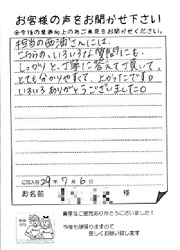 お客様の声をお聞かせ下さい
※今後の業務向上の為ご意見をお聞かせください。
担当の西浦さんには、
こちらの、いろいろな質問にも、
しっかりと、丁寧に答えて頂いて、
とても分かりやすく、よかったです。
いろいろありがとうございました。
ご記入日 29年 7月 6日
お名前
貴重なご意見ありがとうございました!
今後も頑張りますので
宜しくお願い致します